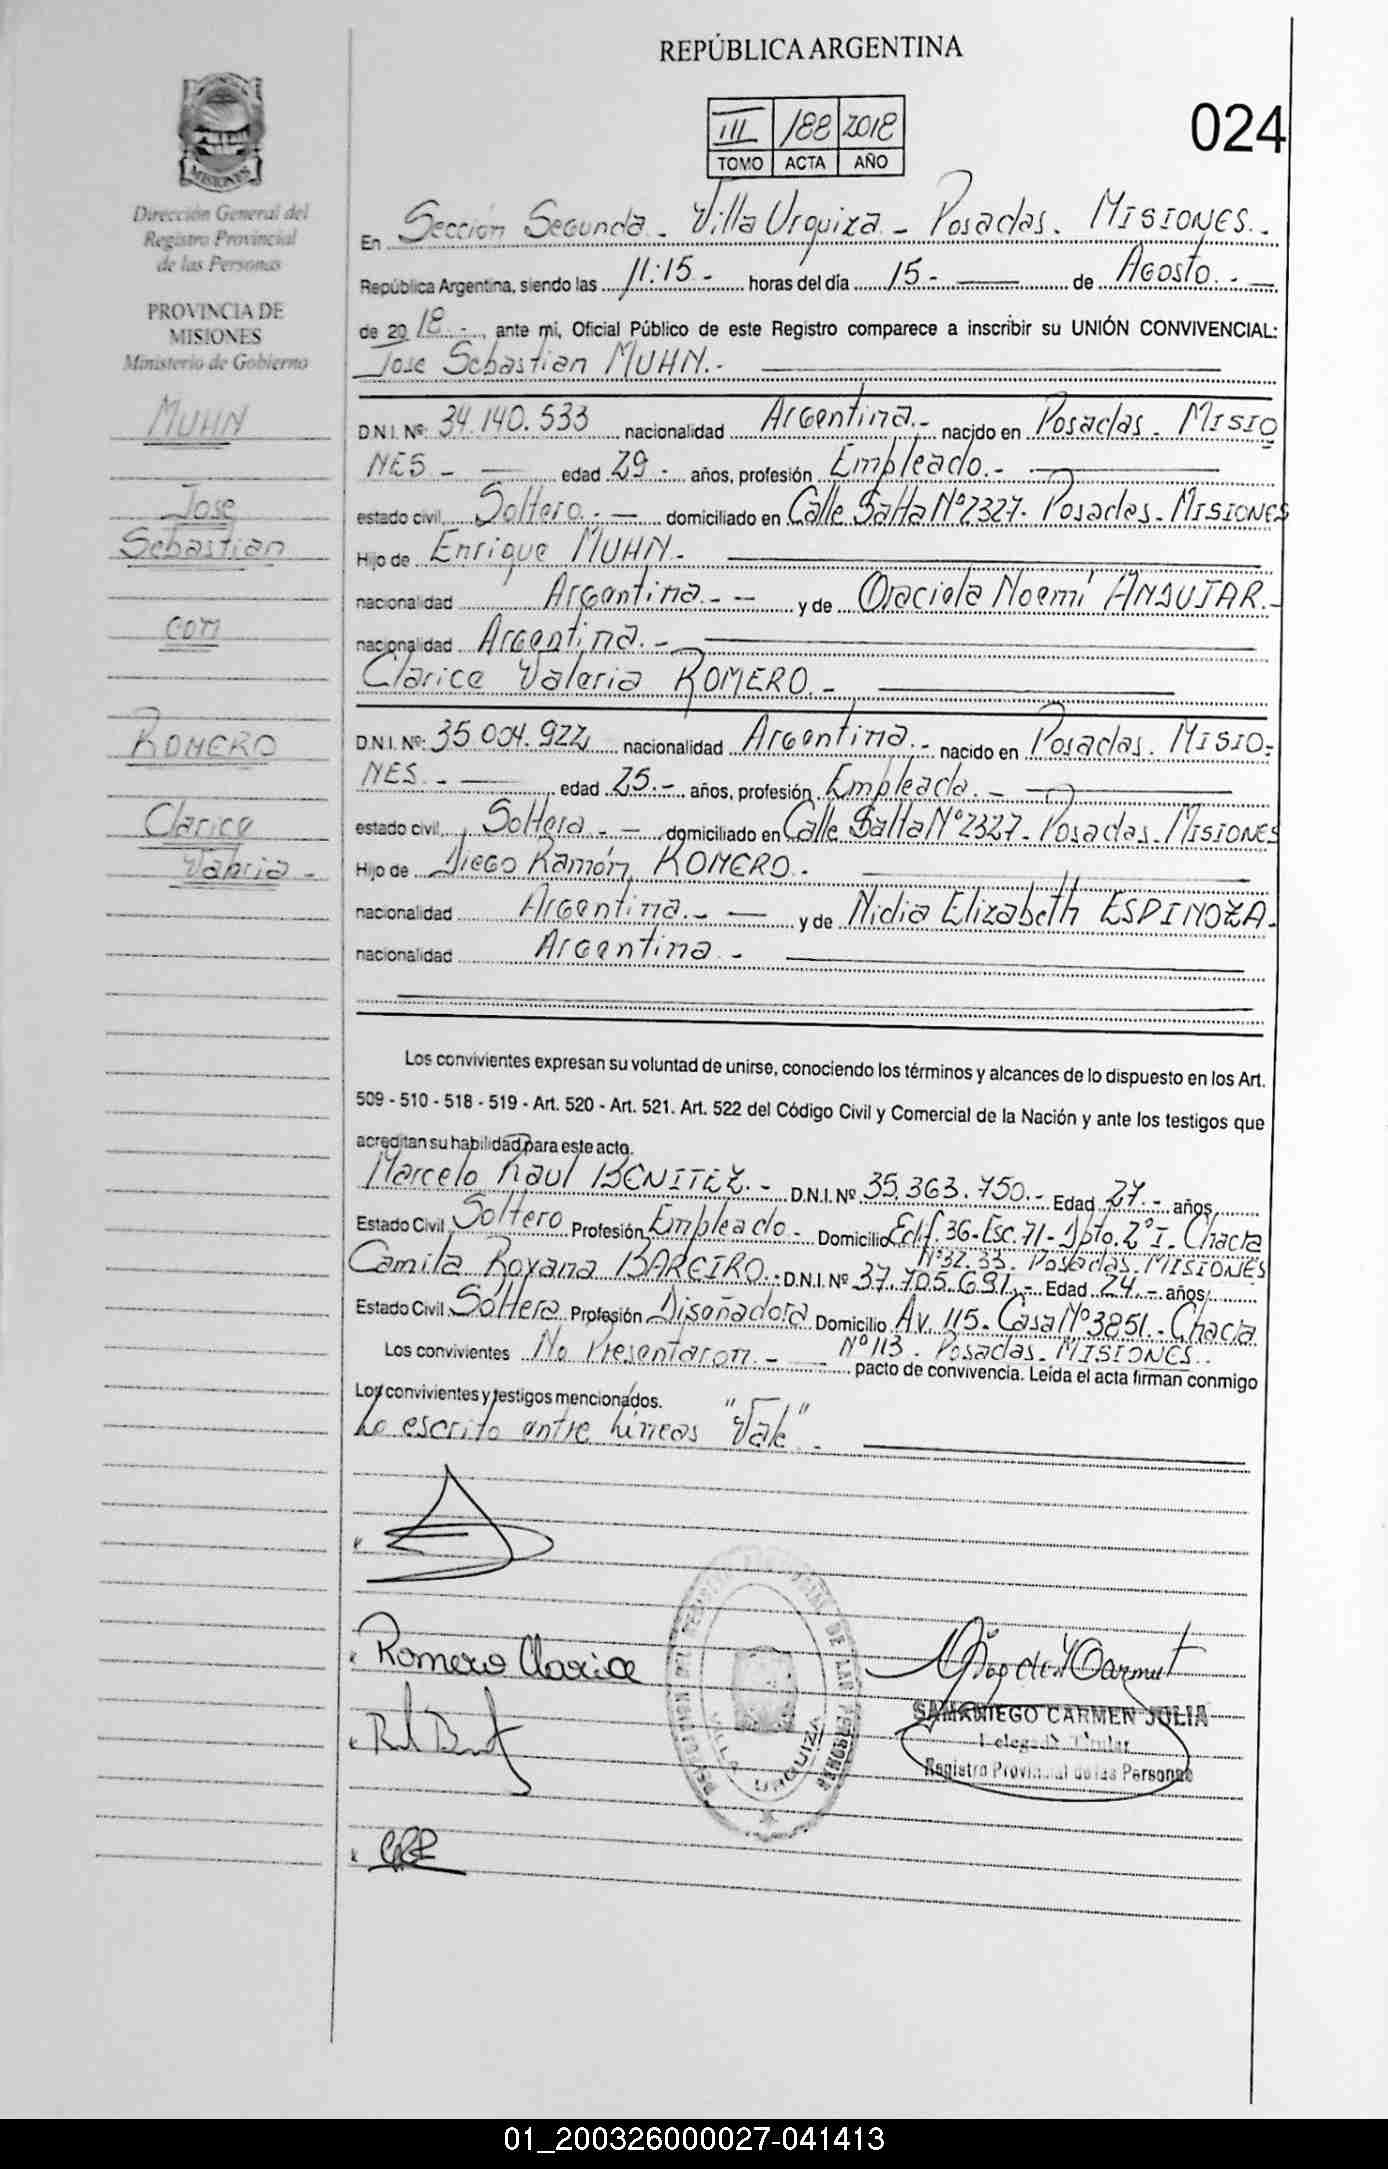 REPÚBLICA ARGENTINA
III 188 2018
TOMO ACTA AÑO
024
MISIONES
Dirección General del
Registro Provincial
de las Personas
PROVINCIA DE
MISIONES
Ministerio de Gobierno
MUHN
Jose
Sebastian
con
ROMERO
Clarice
Valeria -
En Sección Segunda - Villa Urquiza - Posadas - MISIONES.-
República Argentina, siendo las 11:15.- horas del día 15.- de Agosto.-
de 2018.-, ante mi, Oficial Público de este Registro comparece a inscribir su UNIÓN CONVIVENCIAL:
Jose Sebastian MUHN.-
D.N.I. Nº: 34.140.533 nacionalidad Argentina.- nacido en Posadas - MISIO
NES.- edad 29.- años, profesión Empleado.-
estado civil Soltero.- domiciliado en Calle Salta Nº2327- Posadas - MISIONES
Hijo de Enrique MUHN.-
nacionalidad Argentina.- y de Graciela Noemí ANDUJAR.-
nacionalidad Argentina.-
Clarice Valeria ROMERO.-
D.N.I. Nº: 35.004.922 nacionalidad Argentina.- nacido en Posadas - MISIO-
NES.- edad 25.- años, profesión Empleada.-
estado civil Soltera.- domiciliado en Calle Salta Nº2327- Posadas - MISIONES
Hijo de Diego Ramón ROMERO.-
nacionalidad Argentina.- y de Nidia Elizabeth ESPINOZA.-
nacionalidad Argentina.-
Los convivientes expresan su voluntad de unirse, conociendo los términos y alcances de lo dispuesto en los Art.
509 - 510 - 518 - 519 - Art. 520 - Art. 521. Art. 522 del Código Civil y Comercial de la Nación y ante los testigos que
acreditan su habilidad para este acto.
Marcelo Raul BENITEZ.- D.N.I. Nº 35.363.750.- Edad 27.- años,
Estado Civil Soltero Profesión Empleado.- Domicilio Edif. 36-Esc.71-Dpto.2º I - Chacra
Nº32.33. Posadas-MISIONES
Camila Roxana BAREIRO.- D.N.I. Nº 37.705.691.- Edad 24.- años,
Estado Civil Soltera Profesión Diseñadora Domicilio Av. 115- Casa Nº3851.- Chacra
Nº113. Posadas-MISIONES.
Los convivientes No Presentaron.- pacto de convivencia. Leída el acta firman conmigo
Los convivientes y testigos mencionados.
Lo escrito entre lineas "Vale".-
Romero Clarice
VILLA URQUIZA
SAMANIEGO CARMEN JULIA
Delegada Titular
Registro Provincial de las Personas
01_200326000027-041413